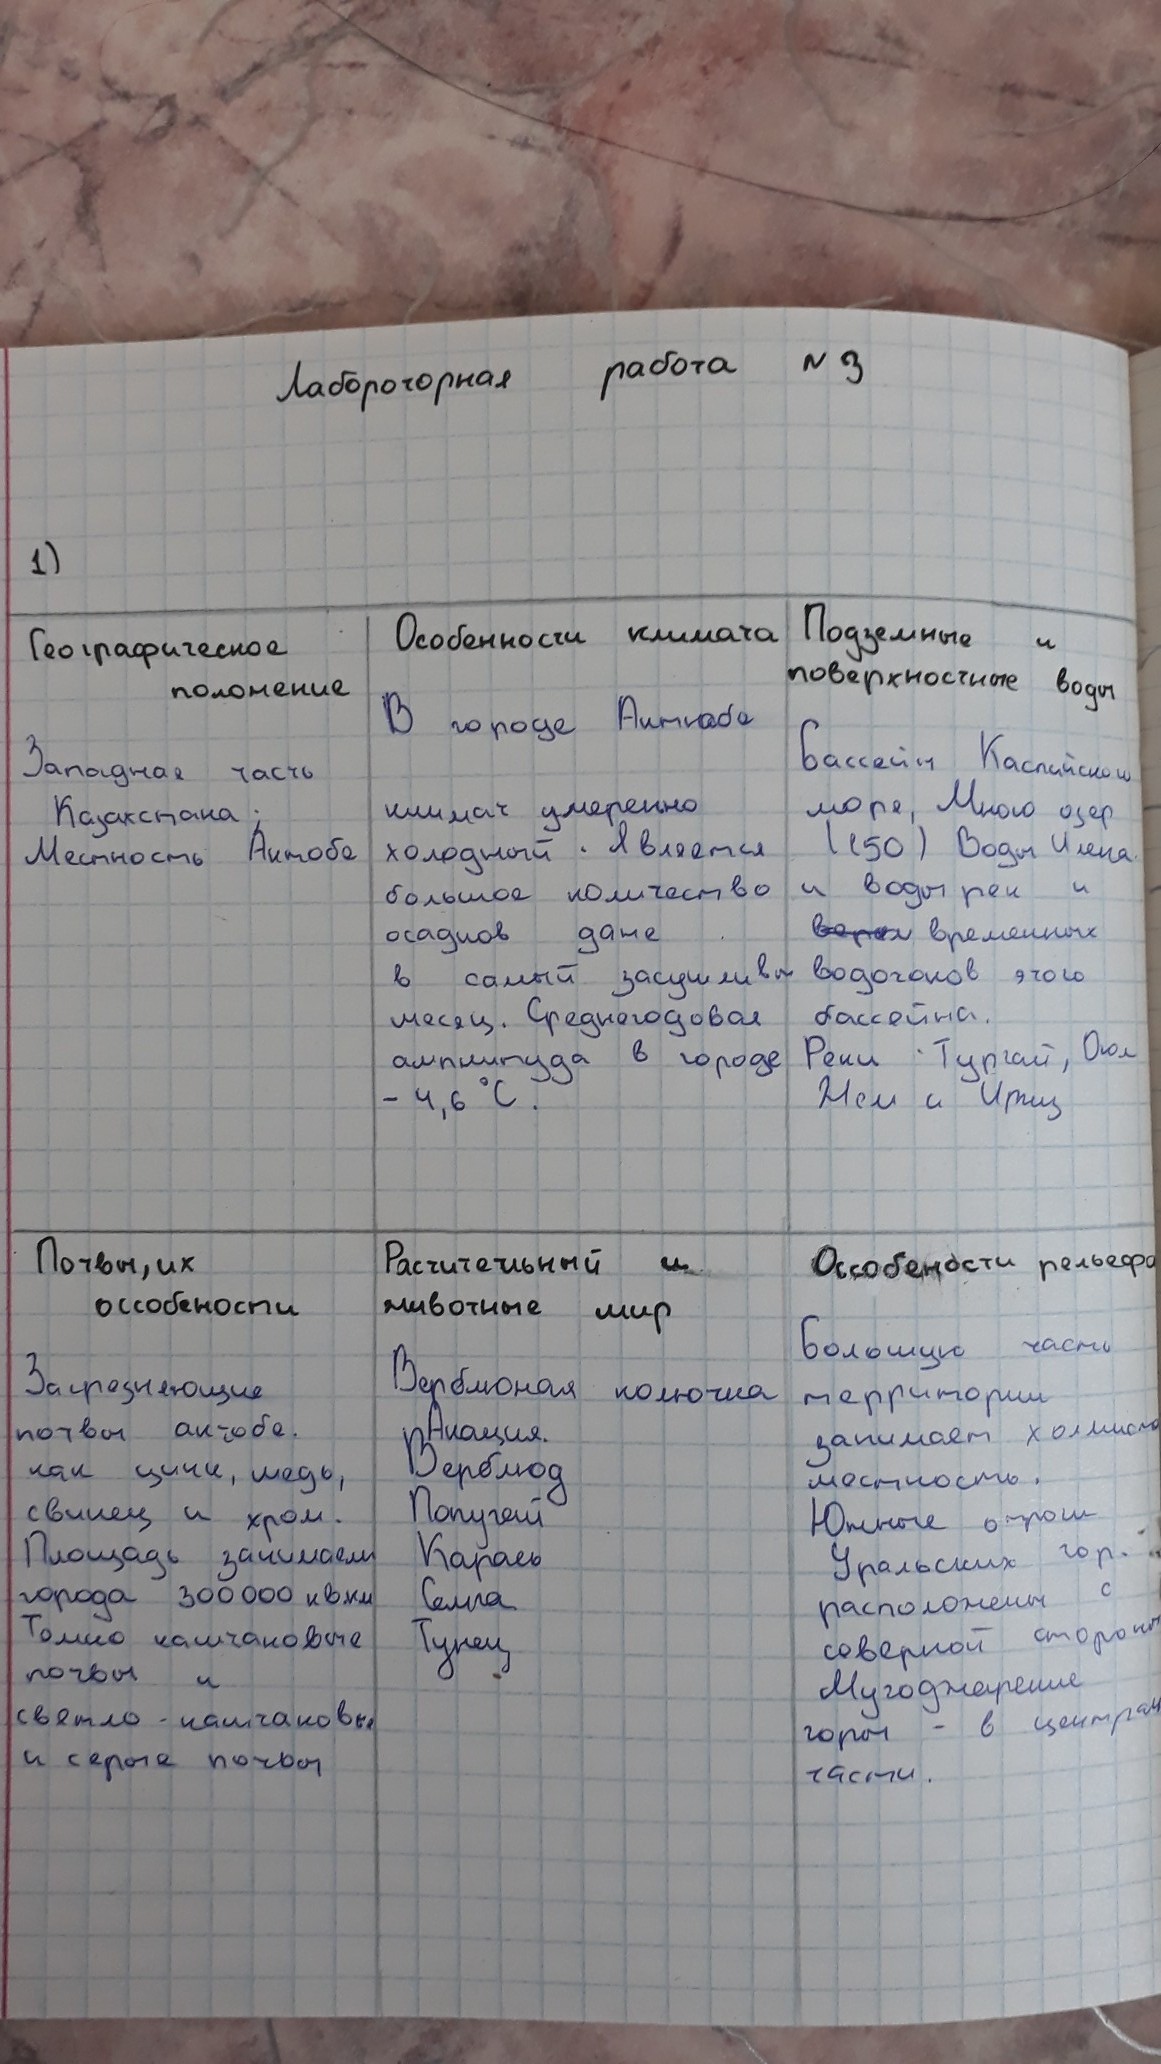 Лабороторная работа №3
1)
Географическое
положение
Западная часть
Казахстана.
Местность Актобе
Особенности климата
В городе Актюбе
климат умеренно
холодный. Является
большое количество
осадков даже
в самый засушливы
месяц. Среднегодовая
амплитуда в городе
- 4,6 °C.
Подземные и
поверхностные воды
Бассейн Каспийского
море, Много озер
(150) Воды Илека
и воды рек и
временных
водотоков этого
бассейна.
Реки Тургай, Ойл
Жем и Иргиз
Почвы, их
оссобености
Загрезняющие
почвы актобе.
как цинк, медь,
свинец и хром.
Площадь занимаем
города 300000 кв км
Томно каштановые
почвы и
светло-каштановые
и серые почвы
Растительный и
животные мир
Верблюжая колючка
Акация.
Верблюд
Попугай
Карась
Семга
Тунец
Оссобености рельефа
Большую часть
территории
занимает холмисто
местность.
Южные отрош
Уральских гор.
расположены с
северной стороны
Мугоджарские
горы - в централ
части.